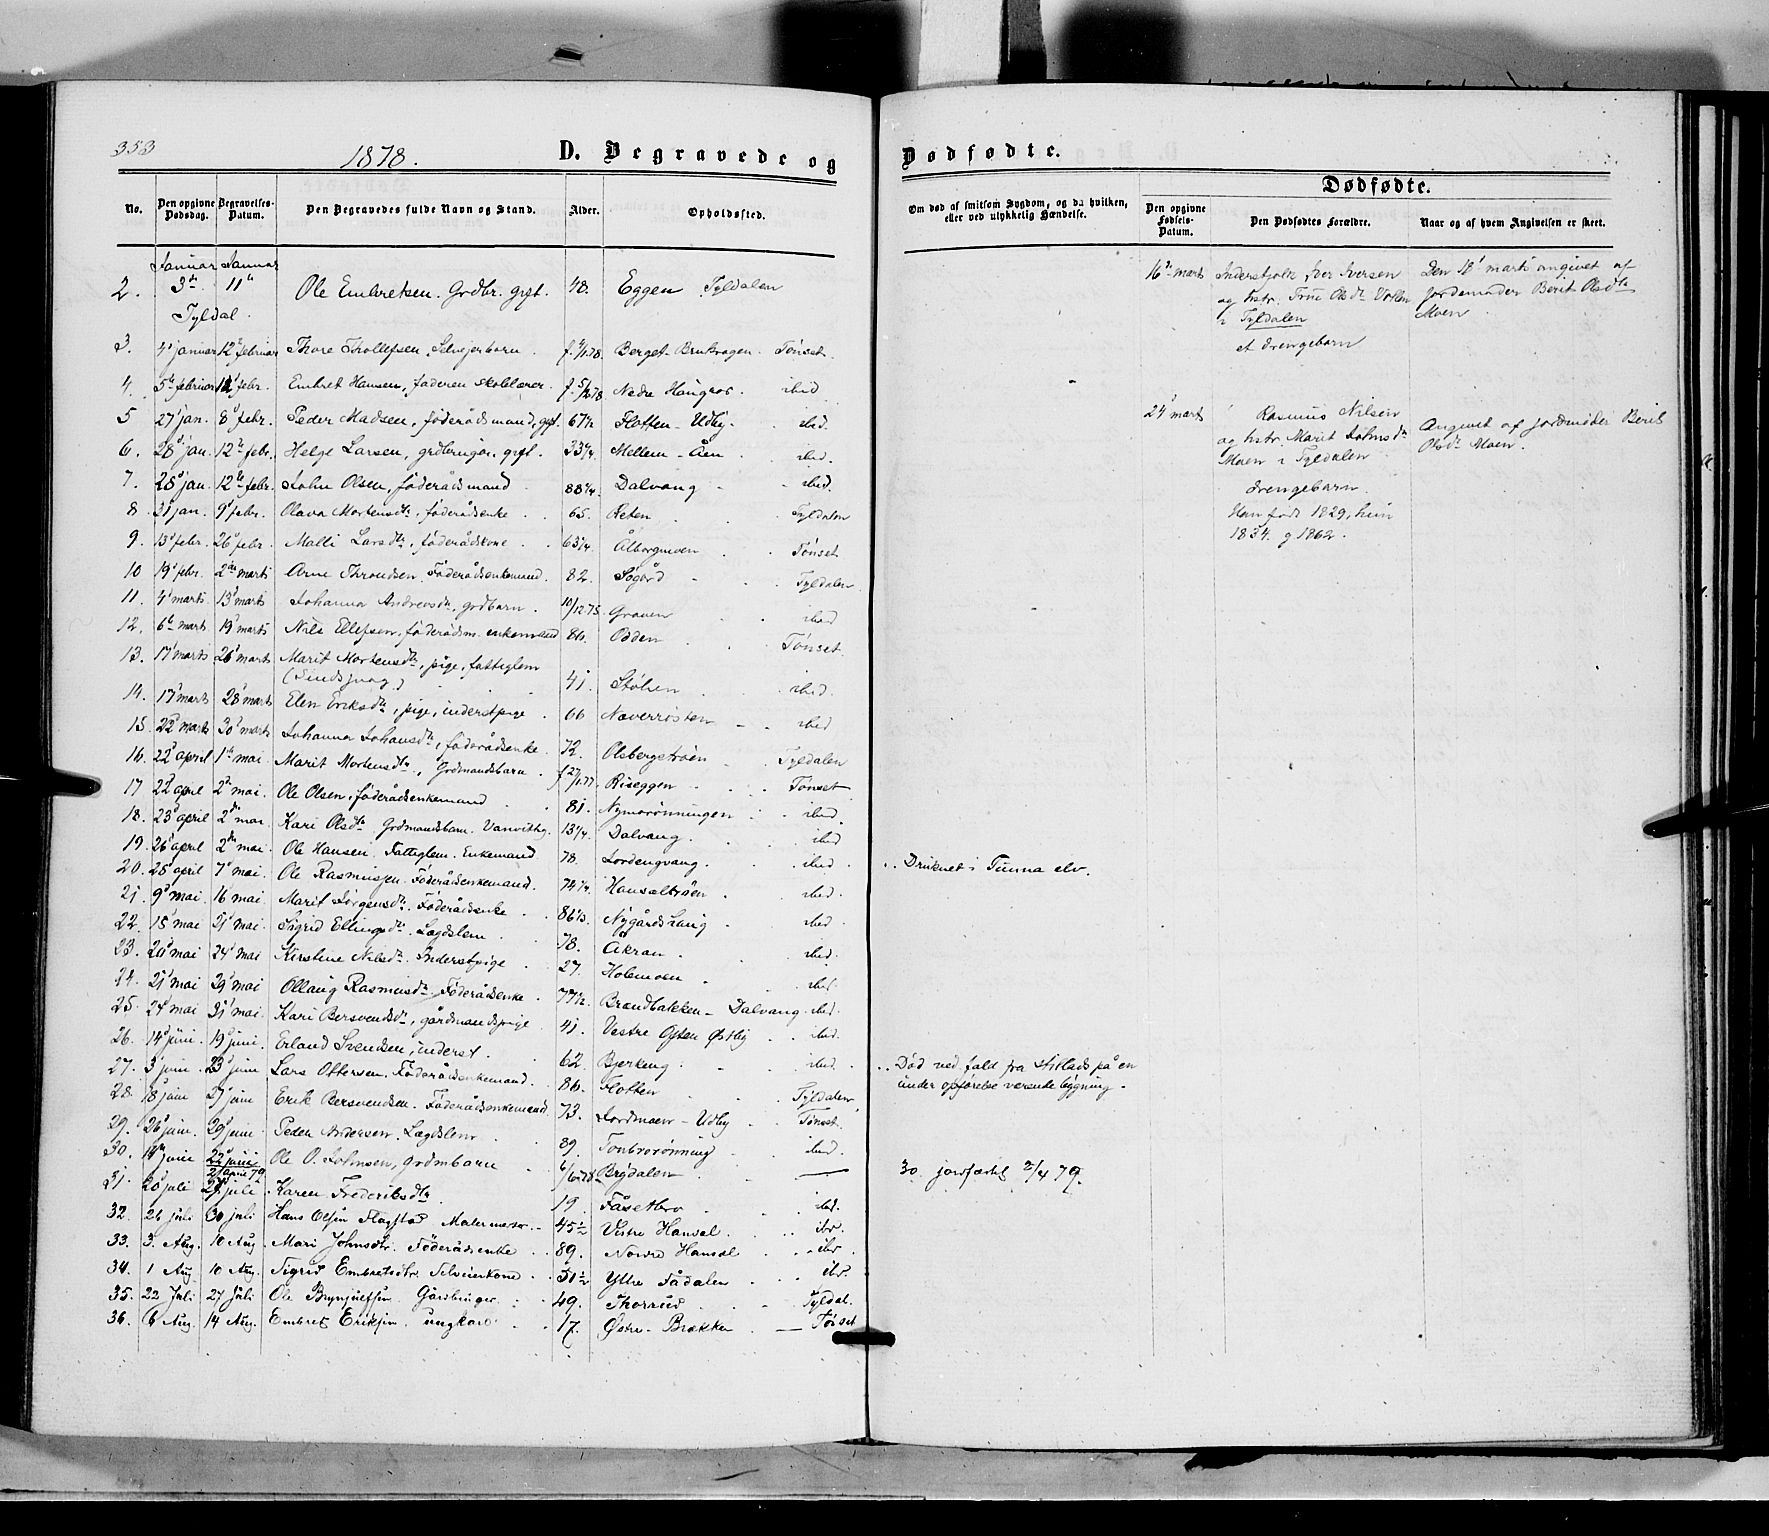 353
1878.
D. Begravede og
No.
Den opgivne Dødsdag.
Begravelses-Datum.
Den Begravedes fulde Navn og Stand.
Alder.
Opholdssted.
Januar Januar
2. 3die 11te Ole Embretsen. Grdbr. gift. 48. Eggen Tyldalen
Tyldal.
3. 4de januar 12te februar Thore Throllefsen, Selvejerbarn. f. 4/1 78 Berget-Brukvagen. Tønset.
4. 5te februar 12te febr. Embret Hansen, faderen skolelærer. f. 5/2 78 Nedre Haugros. ibid
5 27de jan. 8de febr. Peder Madsen, føderådsmand, gift. 67½ Flotten-Udby. ibid.
6. 28de jan. 12te febr. Helge Larsen, grdbruger. gift. 33¼. Mellem-Åen ibid.
7. 28de jan. 12te febr. John Olsen, føderådsmand. 88¼. Dalvang ibid.
8. 31 jan. 9de febr. Olava Mortensdtr, føderådsenke 65. Reten Tyldalen
9. 13de febr. 26de febr. Malli Larsdtr, føderådskone. 63¼ Ålborgmoen Tønset
10 19de febr. 2den marts Arne Throndsen. Føderådsenkemand. 82. Søgård Tyldalen
11. 4de marts 13de marts Johanna Andreasdtr, grdbarn. 10/12 75. Graven ibid
12. 6te marts 19de marts Nils Ellefsen, føderådsm. enkemand 86. Odden Tønset.
13. 17de marts 26de marts Marit Mortensdtr, pige, fattiglem 41. Stølen ibid.
(Sindssvag)
14. 17de marts 28de marts Elen Eriksdtr, pige, inderstpige 66 Næverrosten ibid
15. 22de marts 30de marts Johanna Johansdtr, føderådsenke. 72. Olsbergstrøen Tyldalen
16. 22de april 1ste mai. Marit Mortensdtr, Grdmandsbarn. f. 27/1 77. Riseggen Tønset
17 22de april 2den mai. Ole Olsen, føderådsenkemand 81. Nymorønningen ibid.
18. 23de april 2den mai. Kari Olsdtr. Grdmandsbarn. Vanvittig. 13¼. Dalvang. ibid
19. 26de april 2den mai. Ole Hansen. Fattiglem. Enkemand 78. Jordengvang. ibid
20. 25de april 7de mai. Ole Rasmusen. Føderådsenkemand. 74¼. Hansaltrøen ibid.
21. 9de mai 16 mai. Marit Jørgensdtr. Føderådsenke 86⅓. Nygårdshaug ibid
22. 15de mai 21de mai. Sigrid Ellingsdtr. Lægdslem. 78. Åkran. ibid.
23. 20de mai 24de mai Kirstine Nilsdtr. Inderstpige 27. Holmoen ibid.
24. 21de mai 29de mai Ollaug Rasmusdtr. Føderådsenke. 77½. Brandbakken-Dalvang. ibid.
25. 24de mai 31 mai. Kari Bersvendsdtr, gårdmandspige 41. Vestre Gften Østby ibid.
26. 14de juni. 19de juni. Erland Svendsen, inderst. 62. Bjerkeng ibid
27. 3de juni 23de juni Lars Ottersen. Føderådsenkemand. 86. Flotten Tyldalen
28. 18de juni 27de juni Erik Bersvendsen. Føderådsenkemand. 73. Jordmoen-Udby Tønset.
29. 26de juni. 29de juni Peder Andersen. Lægdslem 89. Tonbrorønning ibid.
30. 14de juni 22de juni Ole O. Johnsen, Grdmbarn 4/6 78 Brydalen —
2/april 79
31. 20de juli 27de juli Karen Frederiksdtr. 19. Fåsetbro ibid.
32. 26 juli 30 juli Hans Olsen Flagstad Malermester. 45½ Vestre Hansal. ibr.
33. 3. Aug. 10 Aug. Mari Johnsdtr. Føderådsenke 89. Nordre Hansal ibr
34. 1 Aug. 10 Aug. Sigrid Embretsdtr. Selveierkone 51½ Ytre Fådalen ibr.
35. 22 Juli 27 Juli Ole Brynjulfsen Gårdbruger. 49. Thorrud Tyldal.
36. 6 Aug. 14 Aug. Embret Eriksen ungkar 17. Østre-Brækken — Tønset
Dødfødte.
Om død af smitsom Sygdom, og da hvilken,
eller ved ulykkelig Hændelse.
Dødfødte.
Den opgivne Fødsels-Datum.
Den Dødfødtes Forældre.
Naar og af hvem Angivelsen er skeet.
16de marts Inderstfolk Iver Iversen
og hstr. Trine Olsdtr Vollen
i Tyldalen
et drengebarn
Den 18de marts angivet af
Jordemoder Berit Olsdtr
Moen.
24de marts Rasmus Nilsen
og hstr. Marit Johnsdtr
Moen i Tyldalen
drengebarn.
Han født 1829, hun
1834. g 1862.
Angivet af jordemoder Berit
Olsdtr Moen.
Druknet i Tunna elv.
Død ved fald fra Stillads på en
under opførelse værende bygning.
30. jordfæstet 2/4 79.